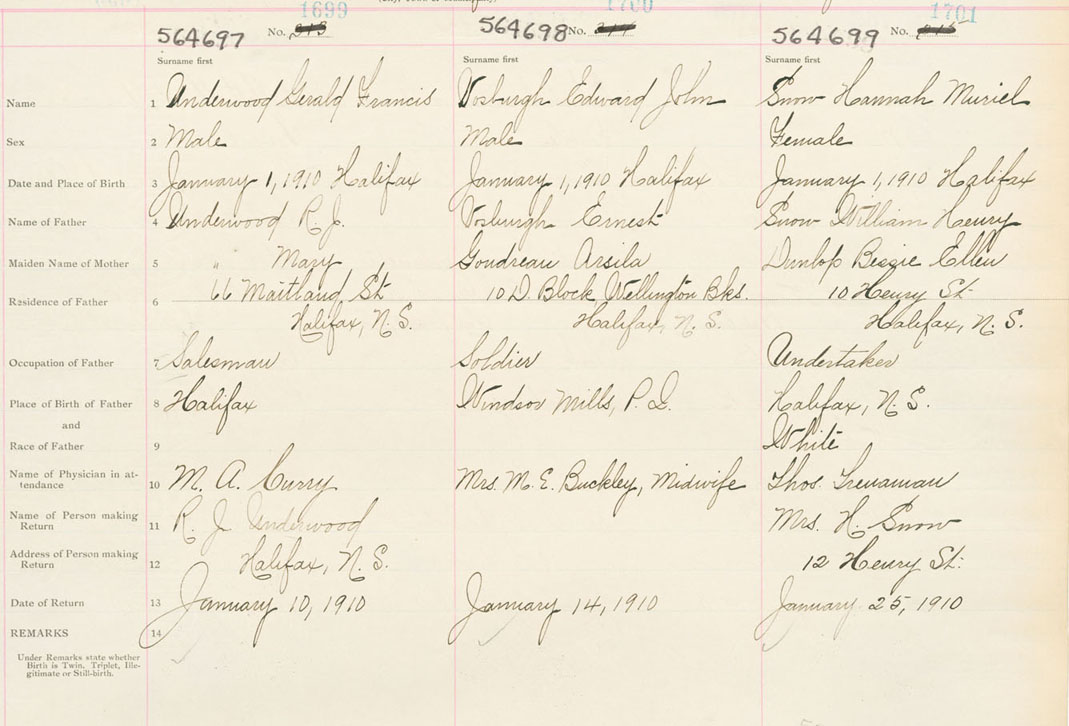 1699 1700 1701
564697 No. 564698 No. 564699 No.
Surname first Surname first Surname first
Name 1 Underwood Gerald Francis Vosburgh Edward John Snow Hannah Muriel
Sex 2 Male Male Female
Date and Place of Birth 3 January 1, 1910 Halifax January 1, 1910 Halifax January 1, 1910 Halifax
Name of Father 4 Underwood R. J. Vosburgh Ernest Snow William Henry
Maiden Name of Mother 5 " Mary Goudreau Arsila Dunlop Bessie Ellen
Residence of Father 6 66 Maitland St 10 D. Block Wellington Bks. 10 Henry St.
Halifax, N. S. Halifax, N. S. Halifax, N. S.
Occupation of Father 7 Salesman Soldier Undertaker
Place of Birth of Father 8 Halifax Windsor Mills, P. Q. Halifax, N. S.
and
Race of Father 9 White
Name of Physician in at-
tendance 10 M. A. Curry Mrs. M. E. Buckley, Midwife Thos. Trenaman
Name of Person making
Return 11 R. J. Underwood Mrs. H. Snow
Address of Person making
Return 12 Halifax, N. S. 12 Henry St.
Date of Return 13 January 10, 1910 January 14, 1910 January 25, 1910
REMARKS 14
Under Remarks state whether
Birth is Twin, Triplet, Ille-
gitimate or Still-birth.